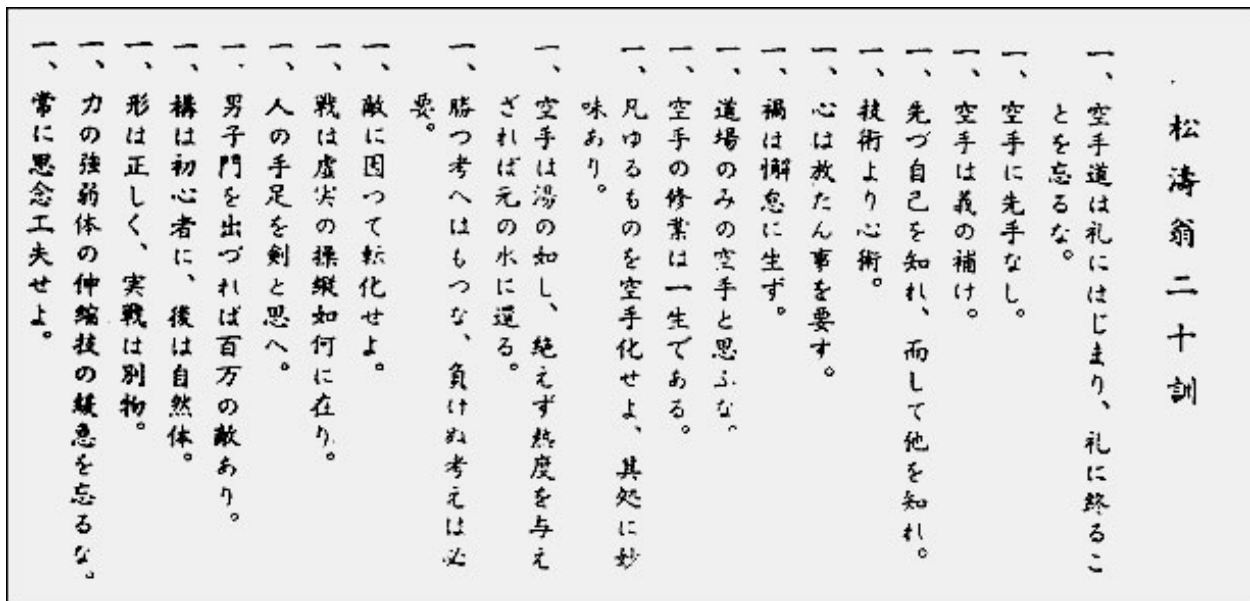 松濤翁二十訓
一、空手道は礼にはじまり、礼に終るこ
とを忘るな。
一、空手に先手なし。
一、空手は義の補け。
一、先づ自己を知れ、而して他を知れ。
一、技術より心術。
一、心は放たん事を要す。
一、禍は懈怠に生ず。
一、道場のみの空手と思ふな。
一、空手の修業は一生である。
一、凡ゆるものを空手化せよ、其処に妙
味あり。
一、空手は湯の如し、絶えず熱度を与え
ざれば元の水に還る。
一、勝つ考へはもつな、負けぬ考えは必
要。
一、敵に因つて転化せよ。
一、戦は虚実の操縦如何に在り。
一、人の手足を剣と思へ。
一、男子門を出づれば百万の敵あり。
一、構は初心者に、後は自然体。
一、形は正しく、実戦は別物。
一、力の強弱体の伸縮技の緩急を忘るな。
一、常に思念工夫せよ。